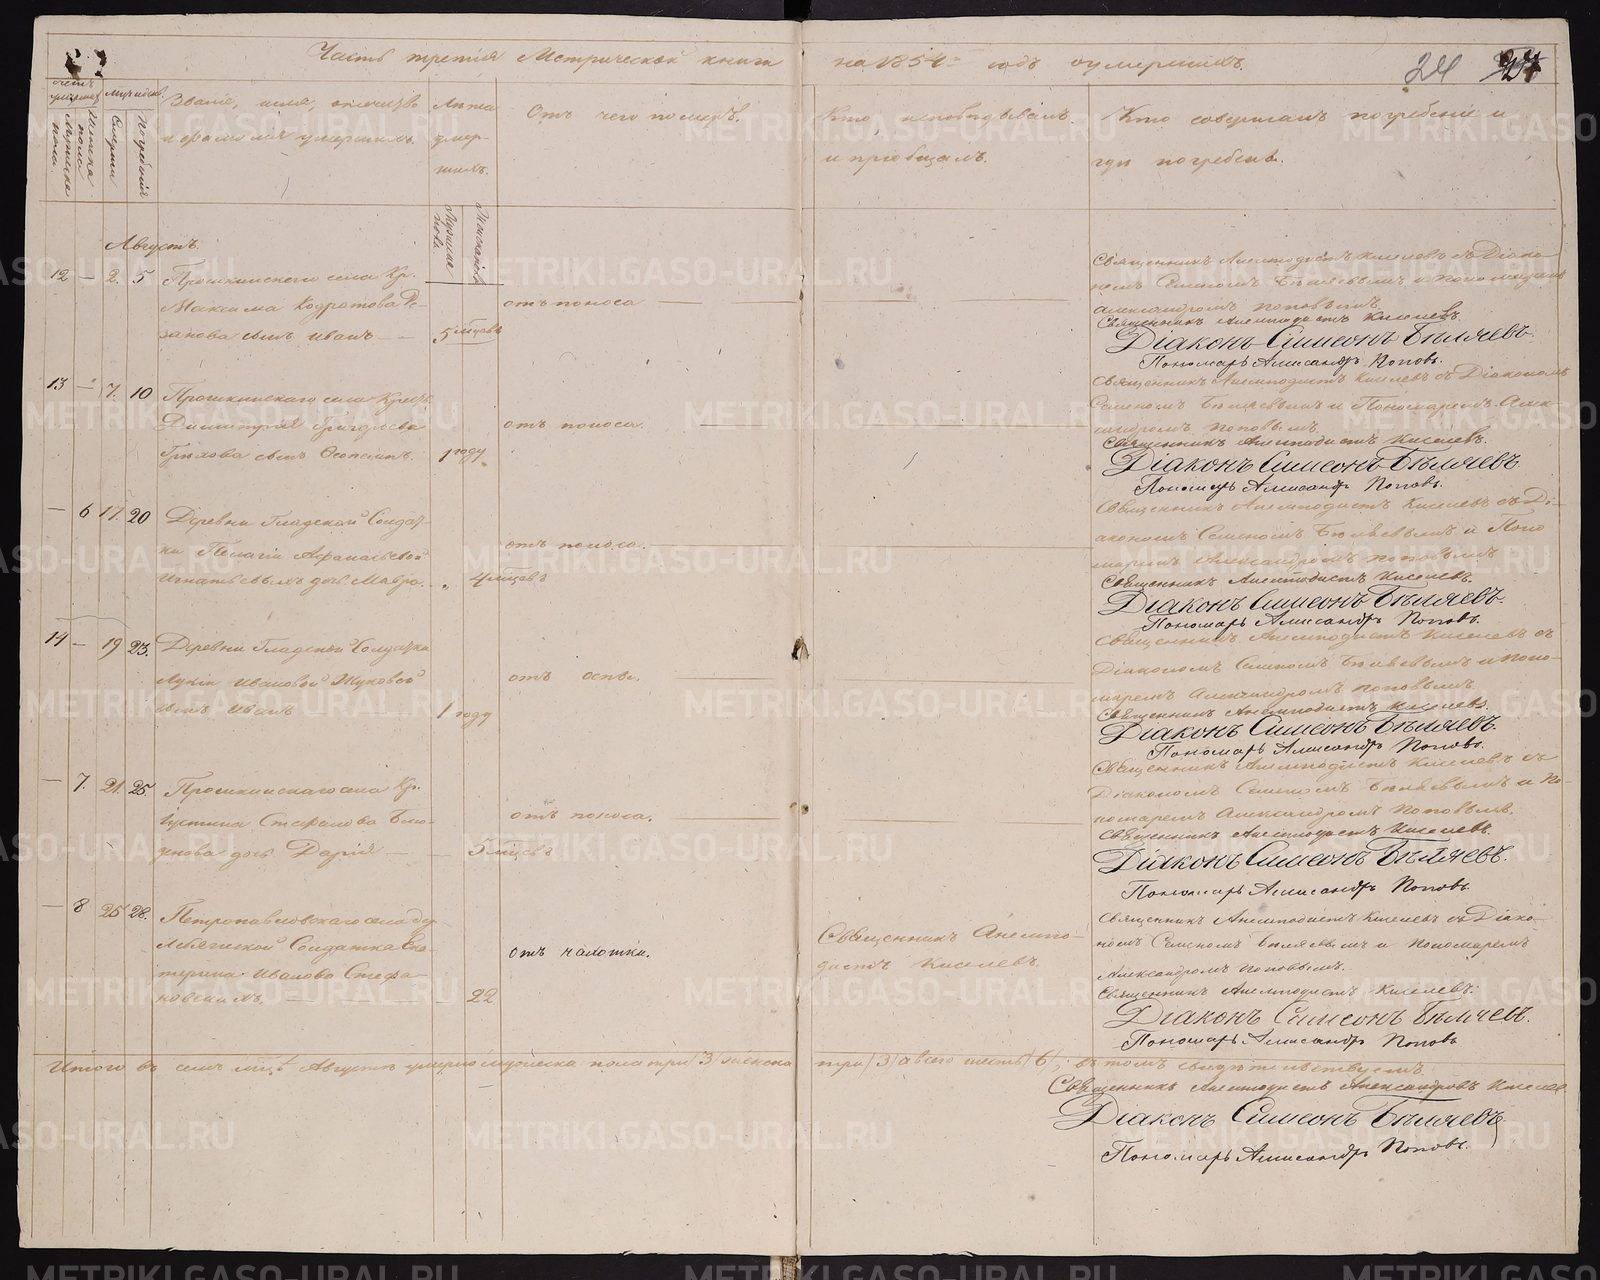 Часть третія Метрической книги на 1854й годъ оумершихъ.
24
Счетъ умершихъ
Мужеска пола.
Женска пола
Мѣс. и день.
Смерти
Погребенія
Званіе, имя, отчество
и фамилія умершихъ.
Лѣта
умер-
шихъ.
Мужеска пола
Женскаго
Отъ чего померъ.
Кто исповѣдывалъ
и пріобщалъ.
Кто совершалъ погребеніе и
гдѣ погребены.
Августъ.
12 — 2. 5 села Кр.
Максима Кодратова Ре-
занова сынъ Иванъ — 5 мѣцовъ
отъ поноса
Священникъ Анемподистъ Киселевъ съ Діако-
номъ Семеномъ Бѣляевымъ и Пономаремъ
Александромъ Поповымъ.
Священникъ Анемподистъ Киселевъ.
Діаконъ Симеонъ Бѣляевъ.
Пономарь Александръ Поповъ.
13 — 7. 10 села
Димитрія Григорьева
сынъ 1 году
отъ поноса.
Священникъ Анемподистъ Киселевъ съ Діакономъ
Семеномъ Бѣляевымъ и Пономаремъ Алек-
сандромъ Поповымъ
Священникъ Анемподистъ Киселевъ.
Діаконъ Симеонъ Бѣляевъ
Пономарь Александръ Поповъ.
— 6 17. 20 Деревни Гладской Солдат-
ки Пелагіи Афанасьевой
дочь Мавра. 4 мѣцовъ
отъ поноса.
Священникъ Анемподистъ Киселевъ съ Ді-
акономъ Семеномъ Бѣляевымъ и Поно
маремъ Александромъ Поповымъ
Священникъ Анемподистъ Киселевъ.
Діаконъ Симеонъ Бѣляевъ.
Пономарь Александръ Поповъ.
14 — 19 23. Деревни Гладской Солдатки
Лукіи Ивановой Жуковой
сынъ Иванъ 1 году
отъ оспы.
Священникъ Анемподистъ Киселевъ съ
Діакономъ Семеномъ Бѣляевымъ и Поно-
маремъ Александромъ Поповымъ
Священникъ Анемподистъ Киселевъ.
Діаконъ Симеонъ Бѣляевъ.
Пономарь Александръ Поповъ.
— 7. 21. 25. села Кр.
Іустина Стефанова
дочь Дарія — 5 мѣцовъ
отъ поноса.
Священникъ Анемподистъ Киселевъ съ
Діакономъ Семеномъ Бѣляевымъ и По-
номаремъ Александромъ Поповымъ.
Священникъ Анемподистъ Киселевъ.
Діаконъ Симеонъ Бѣляевъ.
Пономарь Александръ Поповъ.
— 8 25 28. Петропавловскаго села дер.
Солдатка Ека-
терина Иванова Стефа-
22
отъ чахотки.
Священникъ Анемпо-
дистъ Киселевъ.
Священникъ Анемподистъ Киселевъ съ Діако-
номъ Семеномъ Бѣляевымъ и Пономаремъ
Александромъ Поповымъ.
Священникъ Анемподистъ Киселевъ.
Діаконъ Симеонъ Бѣляевъ.
Пономарь Александръ Поповъ
Итого въ семъ мѣцѣ Августѣ умерло мужеска пола три (3) женска три (3) а всего шесть (6), въ томъ свидѣтельствуемъ
Священникъ Анемподистъ Александровъ Киселев
Діаконъ Симеонъ Бѣляевъ
Пономарь Александръ Поповъ.
METRIKI.GASO-URAL.RU